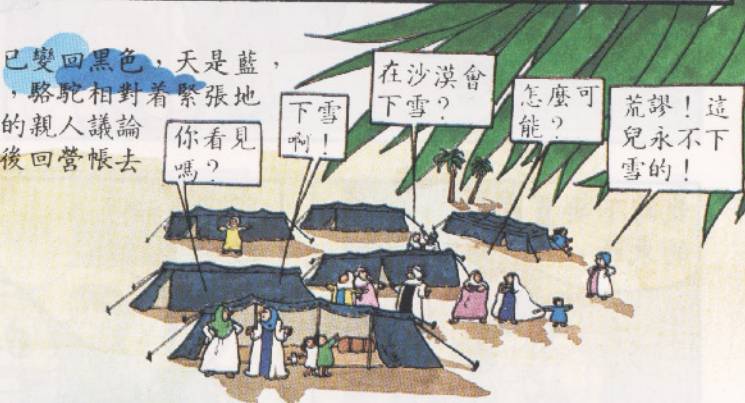 已變回黑色，天是藍，
，駱駝相對着緊張地
的親人議論
後回營帳去
你看見
嗎？
下雪
啊！
在沙漠會
下雪？
怎麼可
能？
荒謬！這
兒永不下
雪的！